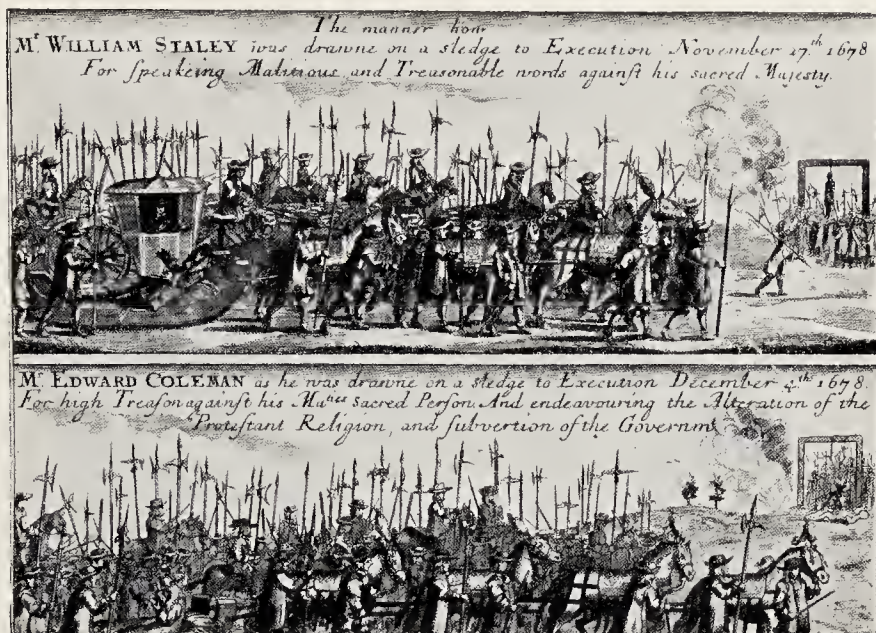 The manner how
Mr WILLIAM STALEY was drawne on a sledge to Execution November 27.th 1678
For speakeing Malitious and Treasonable words againſt his sacred Majesty.
Mr EDWARD COLEMAN as he was drawne on a sledge to Execution December 4.th 1678.
For high Treaſon againſt his Maties sacred Person And endeavouring the Alteration of the
Proteſtant Religion, and ſubvertion of the Governmt